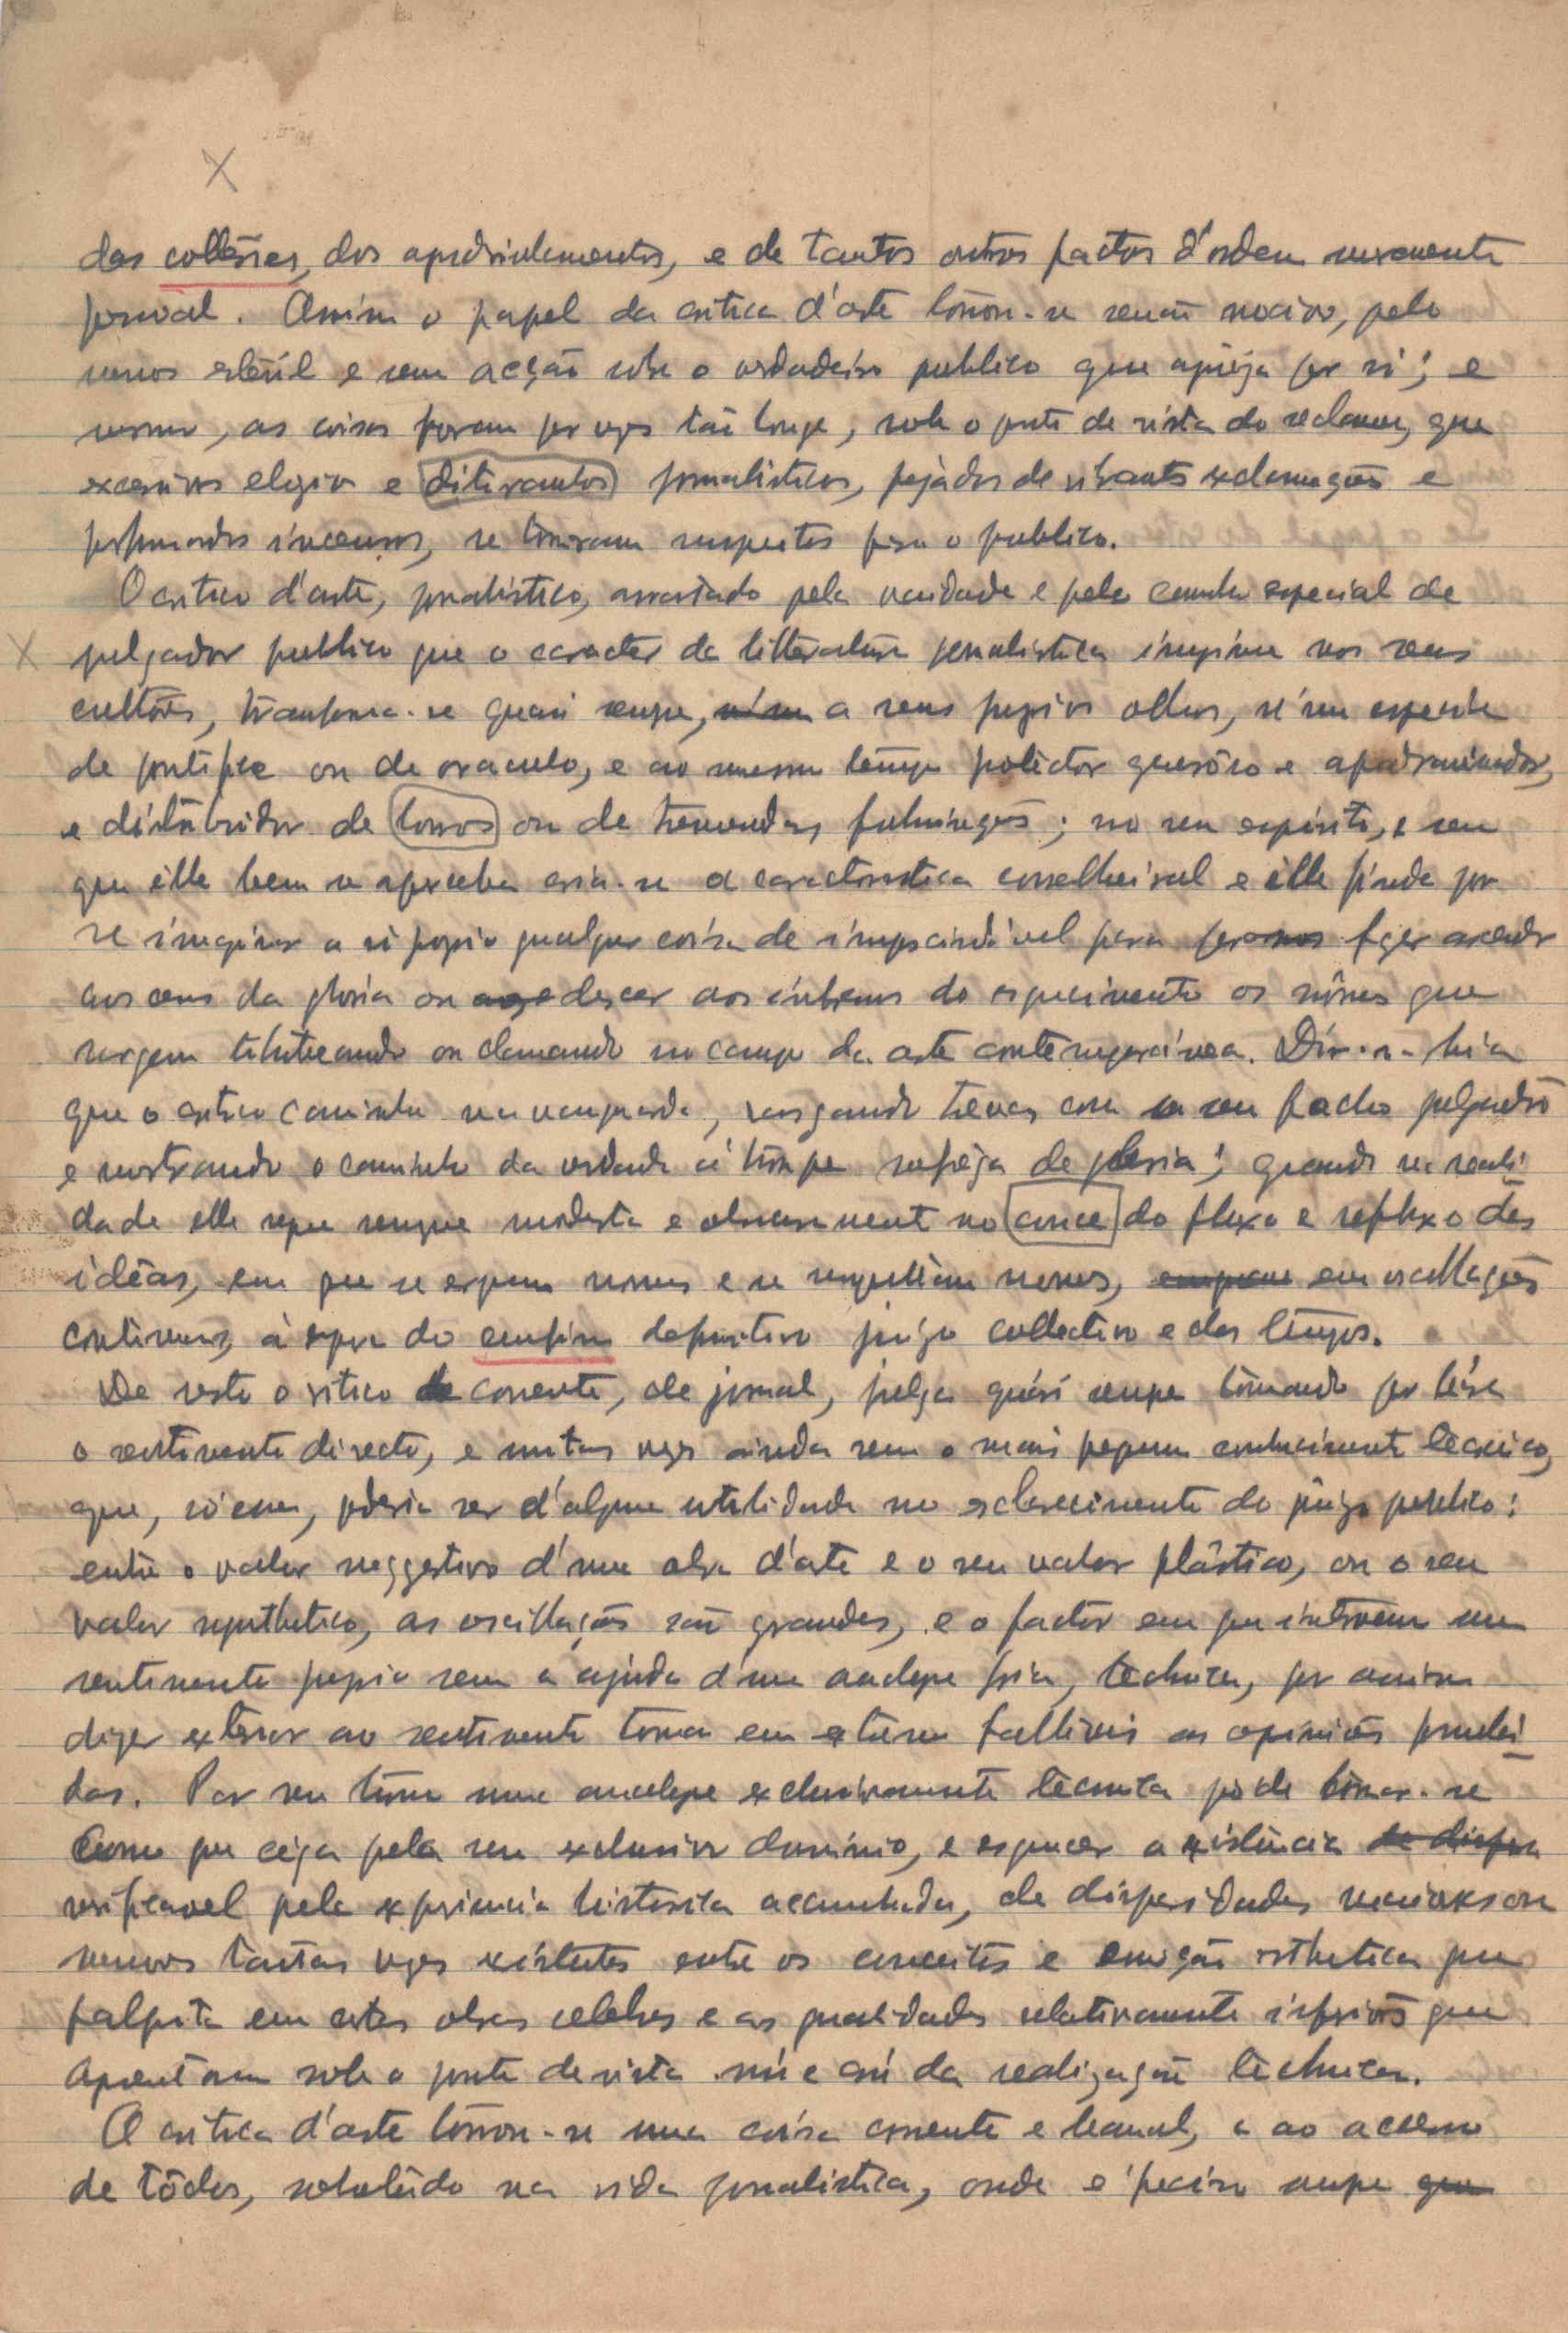 X
das collérias, dos apadrinhamentos, e de tantos outros factos d'ordem meramente
pessoal. Assim o papel da critica d'arte tornou-se senão nocivo, pelo
menos esteril e sem acção sobre o verdadeiro publico que apreja por si; e
mesmo, as coisas foram por vezes tão longe, sob o ponto de vista do reclame, que
excessivos elogios e ditirambos jornalisticos, pejados de vibrantes exclamações e
perfumados incensos, se tornaram suspeitos para o publico.
O critico d'arte, jornalistico, arrastado pela vaidade e pelo cunho especial de
X julgador publico que o caracter da litteratura jornalistica imprime nos seus
cultôres, transforma-se quasi sempre, a seus proprios olhos, n'uma especie
de pontifice ou de oraculo, e ao mesmo tempo protector generôso e apadrinhador,
e distribuidor de louros ou de tremendas fulminações; no seu espirito, e sem
que elle bem se aperceba cria-se a caracteristica conselheiral e elle finda por
se imaginar a si proprio qualquer coisa de imprescindivel para fazer ascender
aos ceus da gloria ou descer aos infernos do esquecimento os nômes que
surgem titubeando ou clamando no campo da arte contemporanea. Dir-se-hia
que o critico caminha na vanguarda, rasgando trevas com o seu facho julgadôr
e mostrando o caminho da verdade á turba sofrêga de gloria; quando na reali-
dade elle segue sempre modesta e obscuramente no couce do fluxo e refluxo das
idéas, em que se erguem nomes e se engullem nomes, em oscillações
continuas, á espera do emfim definitivo juizo collectivo e dos tempos.
De resto o critico corrente, de jornal, julga quási sempre tomando por base
o sentimento directo, e muitas vezes ainda sem o mais pequeno conhecimento tecnico,
que, só esse, poderia ser d'alguma utilidade no esclarecimento do juizo publico:
entre o valor suggestivo d'uma obra d'arte e o seu valor plástico, ou o seu
valor synthetico, as oscillações são grandes, e o factor em que intervem um
sentimento proprio sem a ajuda d'uma analyse fria, technica, por assim
dizer exterior ao sentimento torna em extremo falliveis as opiniões proferi-
das. Por seu turno uma analyse exclusivamente technica póde tornar-se
como que cega pelo seu exclusivo dominio, e esquecer a existencia
verificavel pela experiencia historica accumulada, de disparidades maiores ou
menores tantas vezes existentes entre os conceitos e emoção esthetica que
palpita em certas obras celebres e as qualidades relativamente inferiores que
apresentam sob o ponto de vista nú e crú da realização technica.
A critica d'arte tornou-se uma coisa corrente e banal, e ao acesso
de tôdos, sobretudo na vida jornalistica, onde é preciso sempre